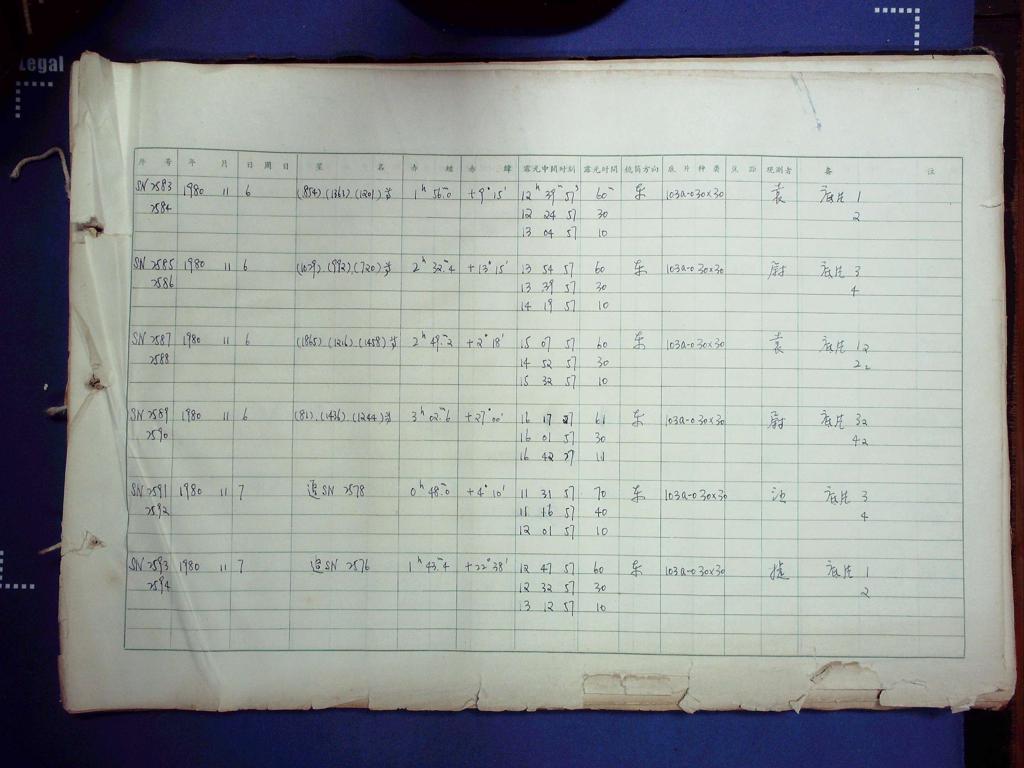 Legal
序号 年 月 日 周日 星 名 赤经 赤纬 露光中间时刻 露光时间 镜筒方向 底片种类 焦距 观测者 备 注
SN 2583 1980 11 6 (854).(1361).(1201)等 1ʰ 56ᵐ.0 +9°15′ 12ʰ 39ᵐ 57ˢ 60ᵐ 东 103a-O 30×30 袁 底片 1
2584 12 24 57 30 2
13 04 57 10
SN 2585 1980 11 6 (1079).(992).(720)等 2ʰ 32ᵐ.4 +13°15′ 13 54 57 60 东 103a-O 30×30 尉 底片 3
2586 13 39 57 30 4
14 19 57 10
SN 2587 1980 11 6 (1865).(1216).(1458)等 2ʰ 49ᵐ.2 +2°18′ 15 07 57 60 东 103a-O 30×30 袁 底片 1₂
2588 14 52 57 30 2₂
15 32 57 10
SN 2589 1980 11 6 (81).(1436).(1244)等 3ʰ 02ᵐ.6 +27°00′ 16 17 27 61 东 103a-O 30×30 尉 底片 3₂
2590 16 01 57 30 4₂
16 42 27 11
SN 2591 1980 11 7 追SN 2578 0ʰ 48ᵐ.0 +4°10′ 11 31 57 70 东 103a-O 30×30 池 底片 3
2592 11 16 57 40 4
12 01 57 10
SN 2593 1980 11 7 追SN 2576 1ʰ 43ᵐ.4 +22°38′ 12 47 57 60 东 103a-O 30×30 底片 1
2594 12 32 57 30 2
13 12 57 10